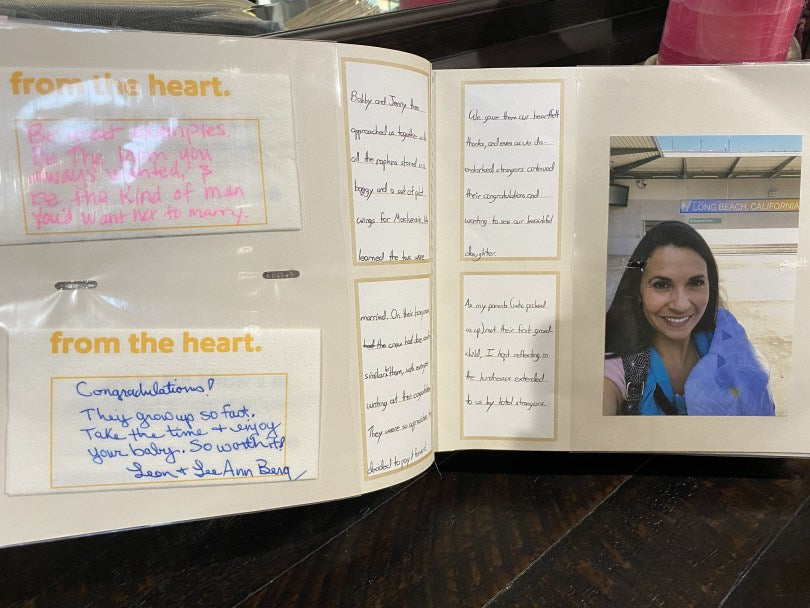 from the heart.
Be great examples.
Be the man you
always wanted, &
be the kind of man
you'd want her to marry.
from the heart.
Congradulations!
They grow up so fast.
Take the time + enjoy
your baby. So worth it!
Leon + LeeAnn Berg
Bobby and Jenny then
approached us together with
all the napkins stored in a
baggy and a set of gold
wings for Mackenzie. We
learned the two were
married. On their honeymoon
the crew had done something
similar for them, with everyone
writing out their congratulations.
They were so appreciative, they
decided to pay it forward.
We gave them our heartfelt
thanks, and even as we dis-
embarked strangers continued
their congratulations and
wanting to see our beautiful
daughter.
As my parents (who picked
us up) met their first grand-
child, I kept reflecting on
the kindness extended
to us by total strangers.
LONG BEACH, CALIFORNIA